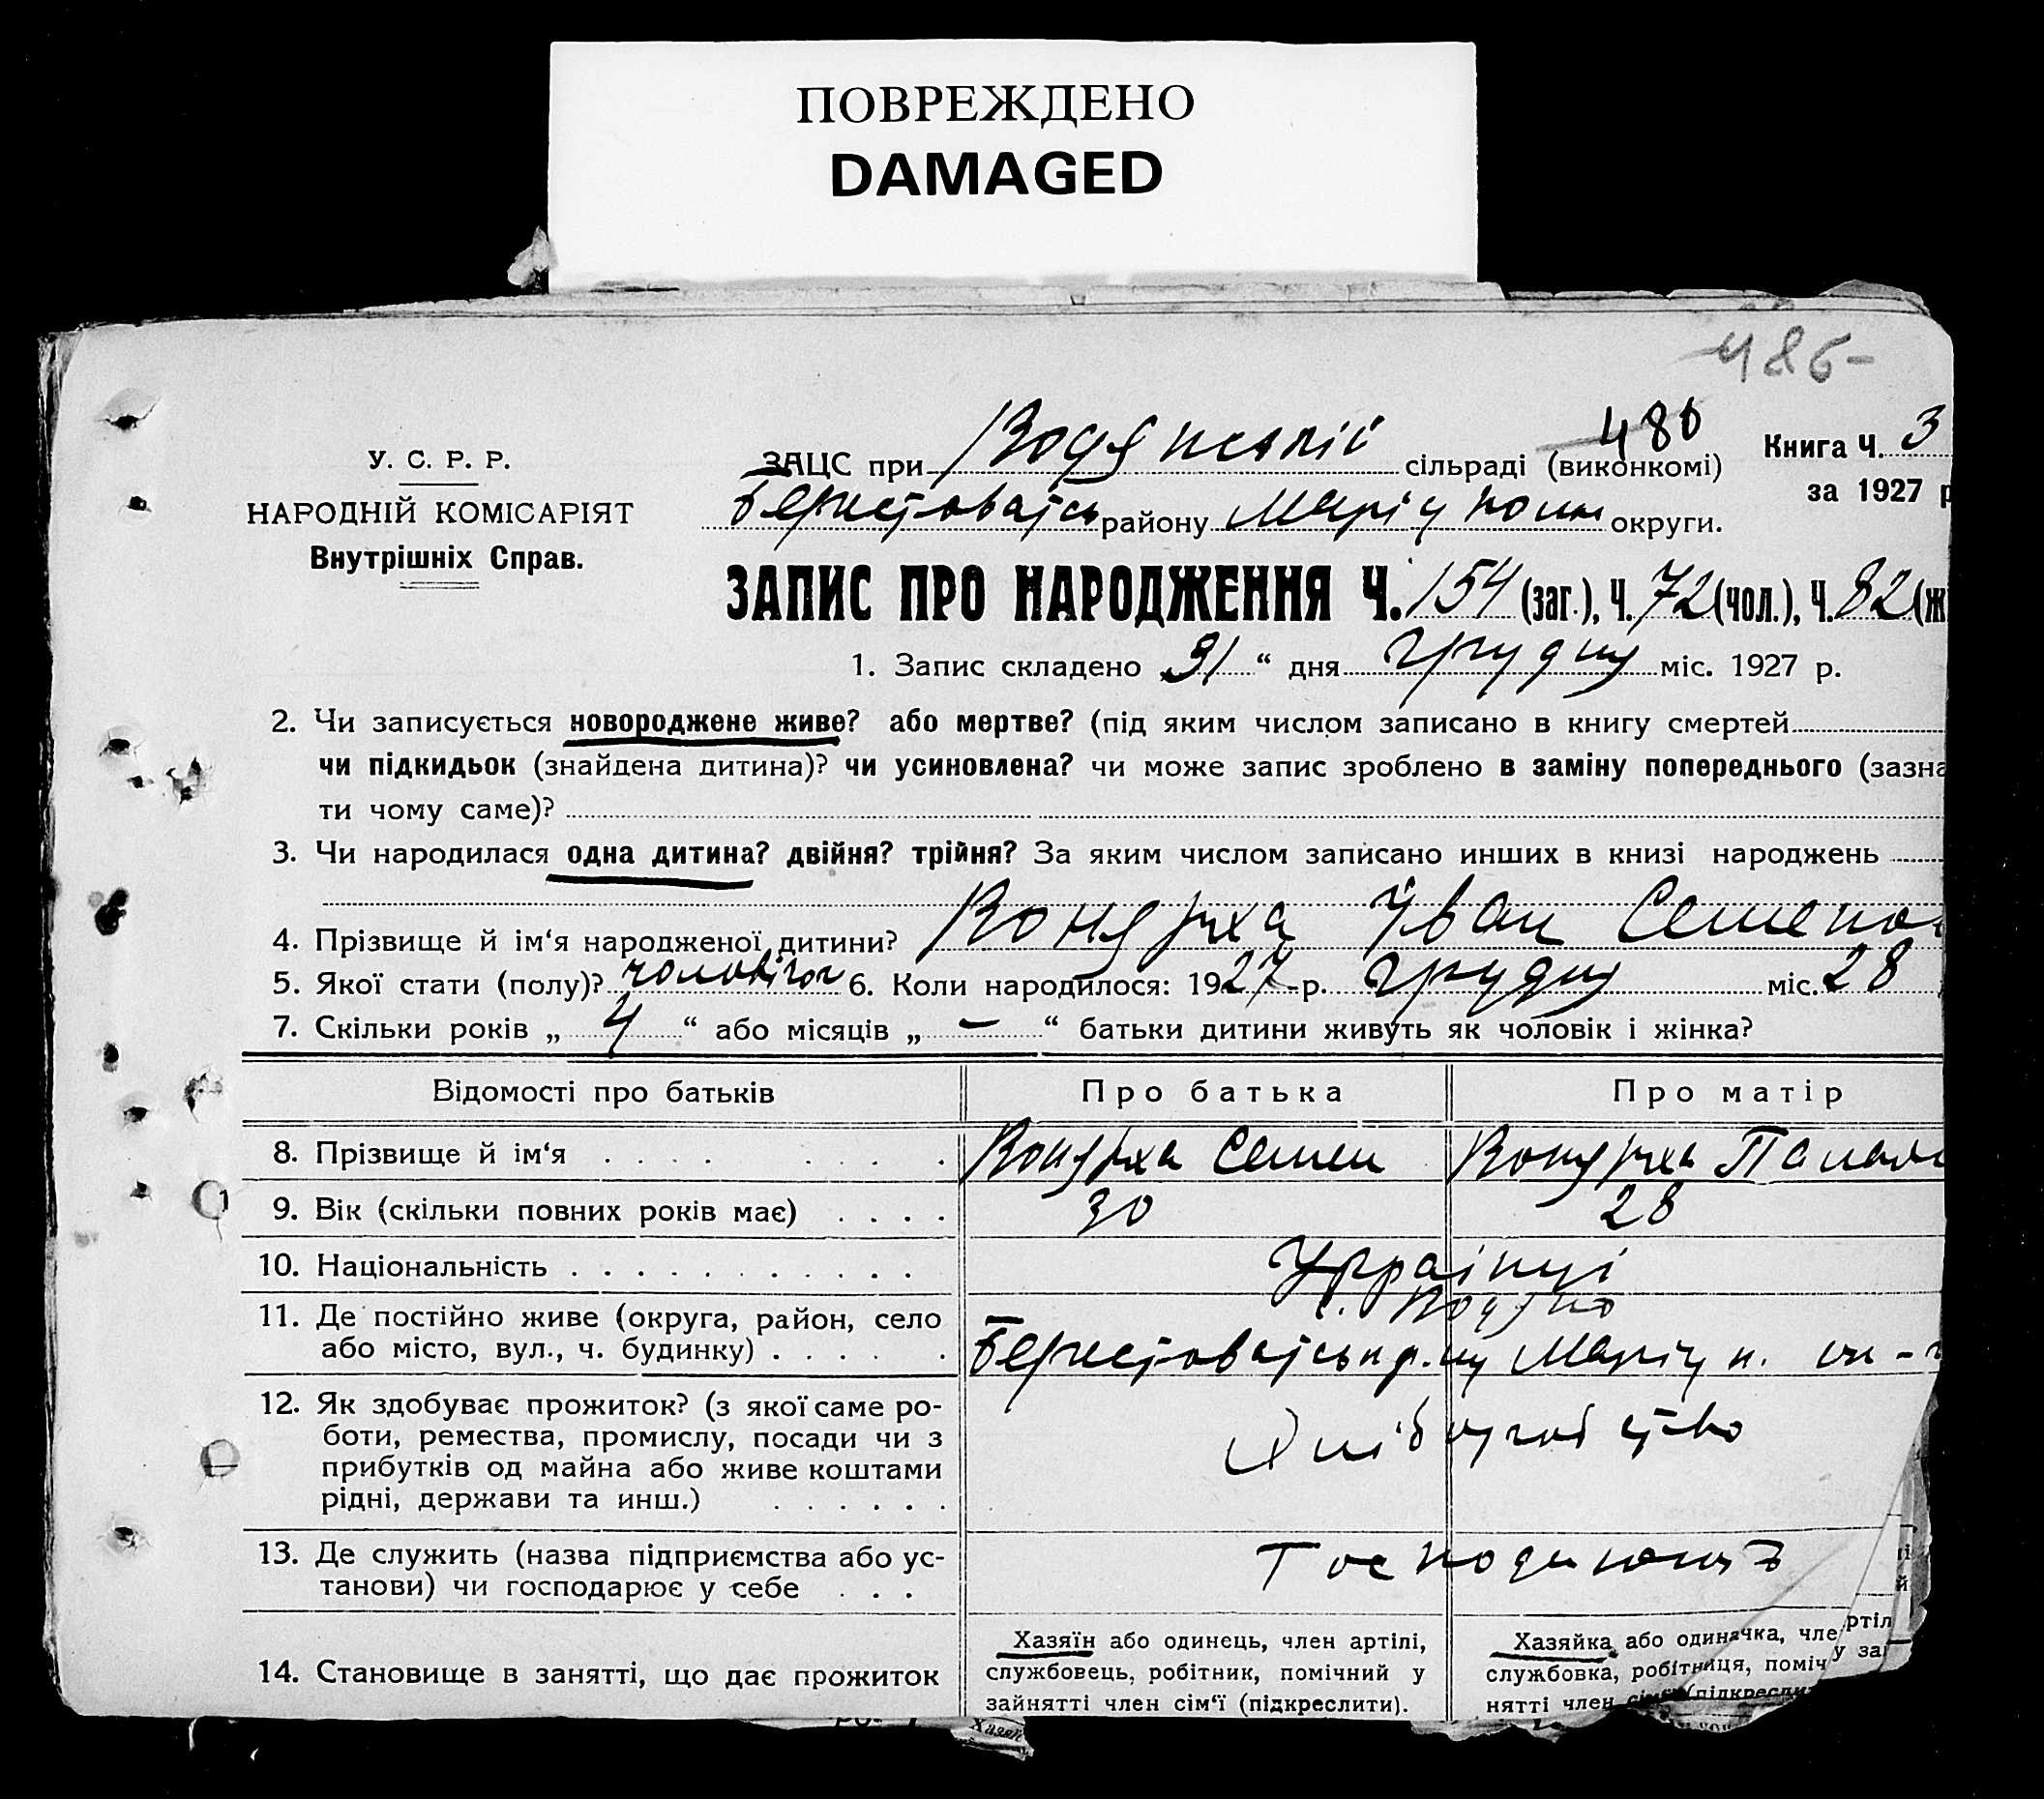 ПОВРЕЖДЕНО
DAMAGED
486-
486
У. С. Р. Р.
НАРОДНІЙ КОМІСАРІЯТ
Внутрішніх Справ.
ЗАЦС при Водянській сільраді (виконкомі)
Книга Ч. 3
за 1927 р
Берестоватськ району Маріупольськ округи.
ЗАПИС ПРО НАРОДЖЕННЯ Ч. 154 (заг.), Ч. 72 (чол.), Ч. 82 (ж
1. Запис складено „31“ дня грудня міс. 1927 р.
2. Чи записується новороджене живе? або мертве? (під яким числом записано в книгу смертей
чи підкидьок (знайдена дитина)? чи усиновлена? чи може запис зроблено в заміну попереднього (зазна
ти чому саме)?
3. Чи народилася одна дитина? двійня? трійня? За яким числом записано инших в книзі народжень
4. Прізвище й ім‘я народженої дитини? Іван Семено
5. Якої стати (полу)? чоловічої 6. Коли народилося: 1927 р. грудня міс. 28
7. Скільки років „ 4 “ або місяців „ – “ батьки дитини живуть як чоловік і жінка?
Відомості про батьків Про батька Про матір
8. Прізвище й ім‘я . . . . Семен
9. Вік (скільки повних років має) . . . . 30 28
10. Національність . . . . . . . . . . . Українці
11. Де постійно живе (округа, район, село
або місто, вул., ч. будинку) . . . . .
с. Водяно
12. Як здобуває прожиток? (з якої саме ро-
боти, ремества, промислу, посади чи з
прибутків од майна або живе коштами
рідні, держави та инш.) . . . . . .
Хліборобство
13. Де служить (назва підприємства або ус-
танови) чи господарює у себе . . .
14. Становище в занятті, що дає прожиток
Хазяїн або одинець, член артілі,
службовець, робітник, помічний у
зайнятті член сім‘ї (підкреслити).
Хазяйка або одиначка, чле
службовка, робітниця, поміч
нятті член